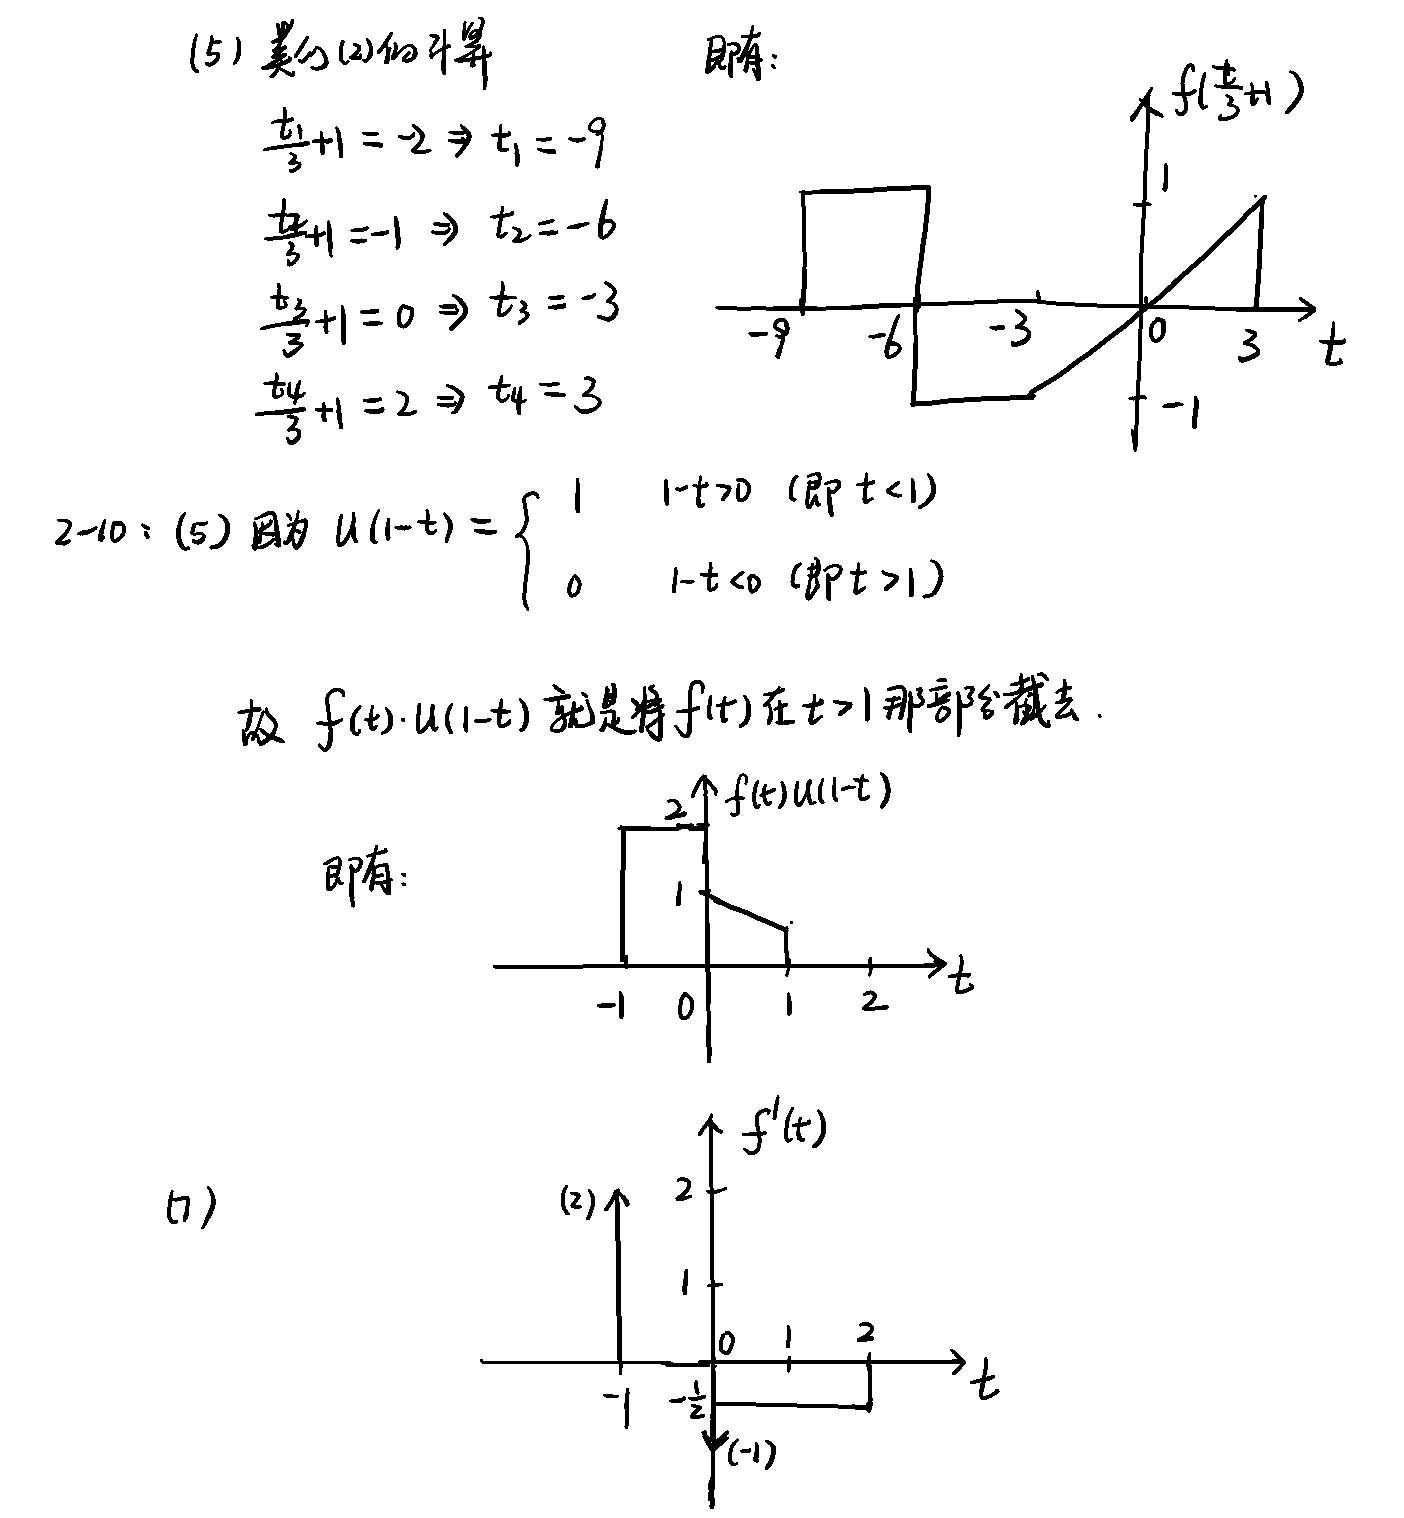 (5) 类似(2)的计算
t₁/3+1 = -2 ⇒ t₁ = -9
t₂/3+1 = -1 ⇒ t₂ = -6
t₃/3+1 = 0 ⇒ t₃ = -3
t₄/3+1 = 2 ⇒ t₄ = 3
即有:
f(t/3+1)
1
-9 -6 -3 0 3 t
-1
2-10: (5) 因为 u(1-t) = { 1 1-t>0 (即 t<1)
0 1-t<0 (即 t>1)
故 f(t)·u(1-t) 就是将 f(t) 在 t>1 那部分截去.
即有:
2 f(t)u(1-t)
1
-1 0 1 2 t
(7)
f'(t)
(2) 2
1
0 1 2
-1 -1/2 t
(-1)